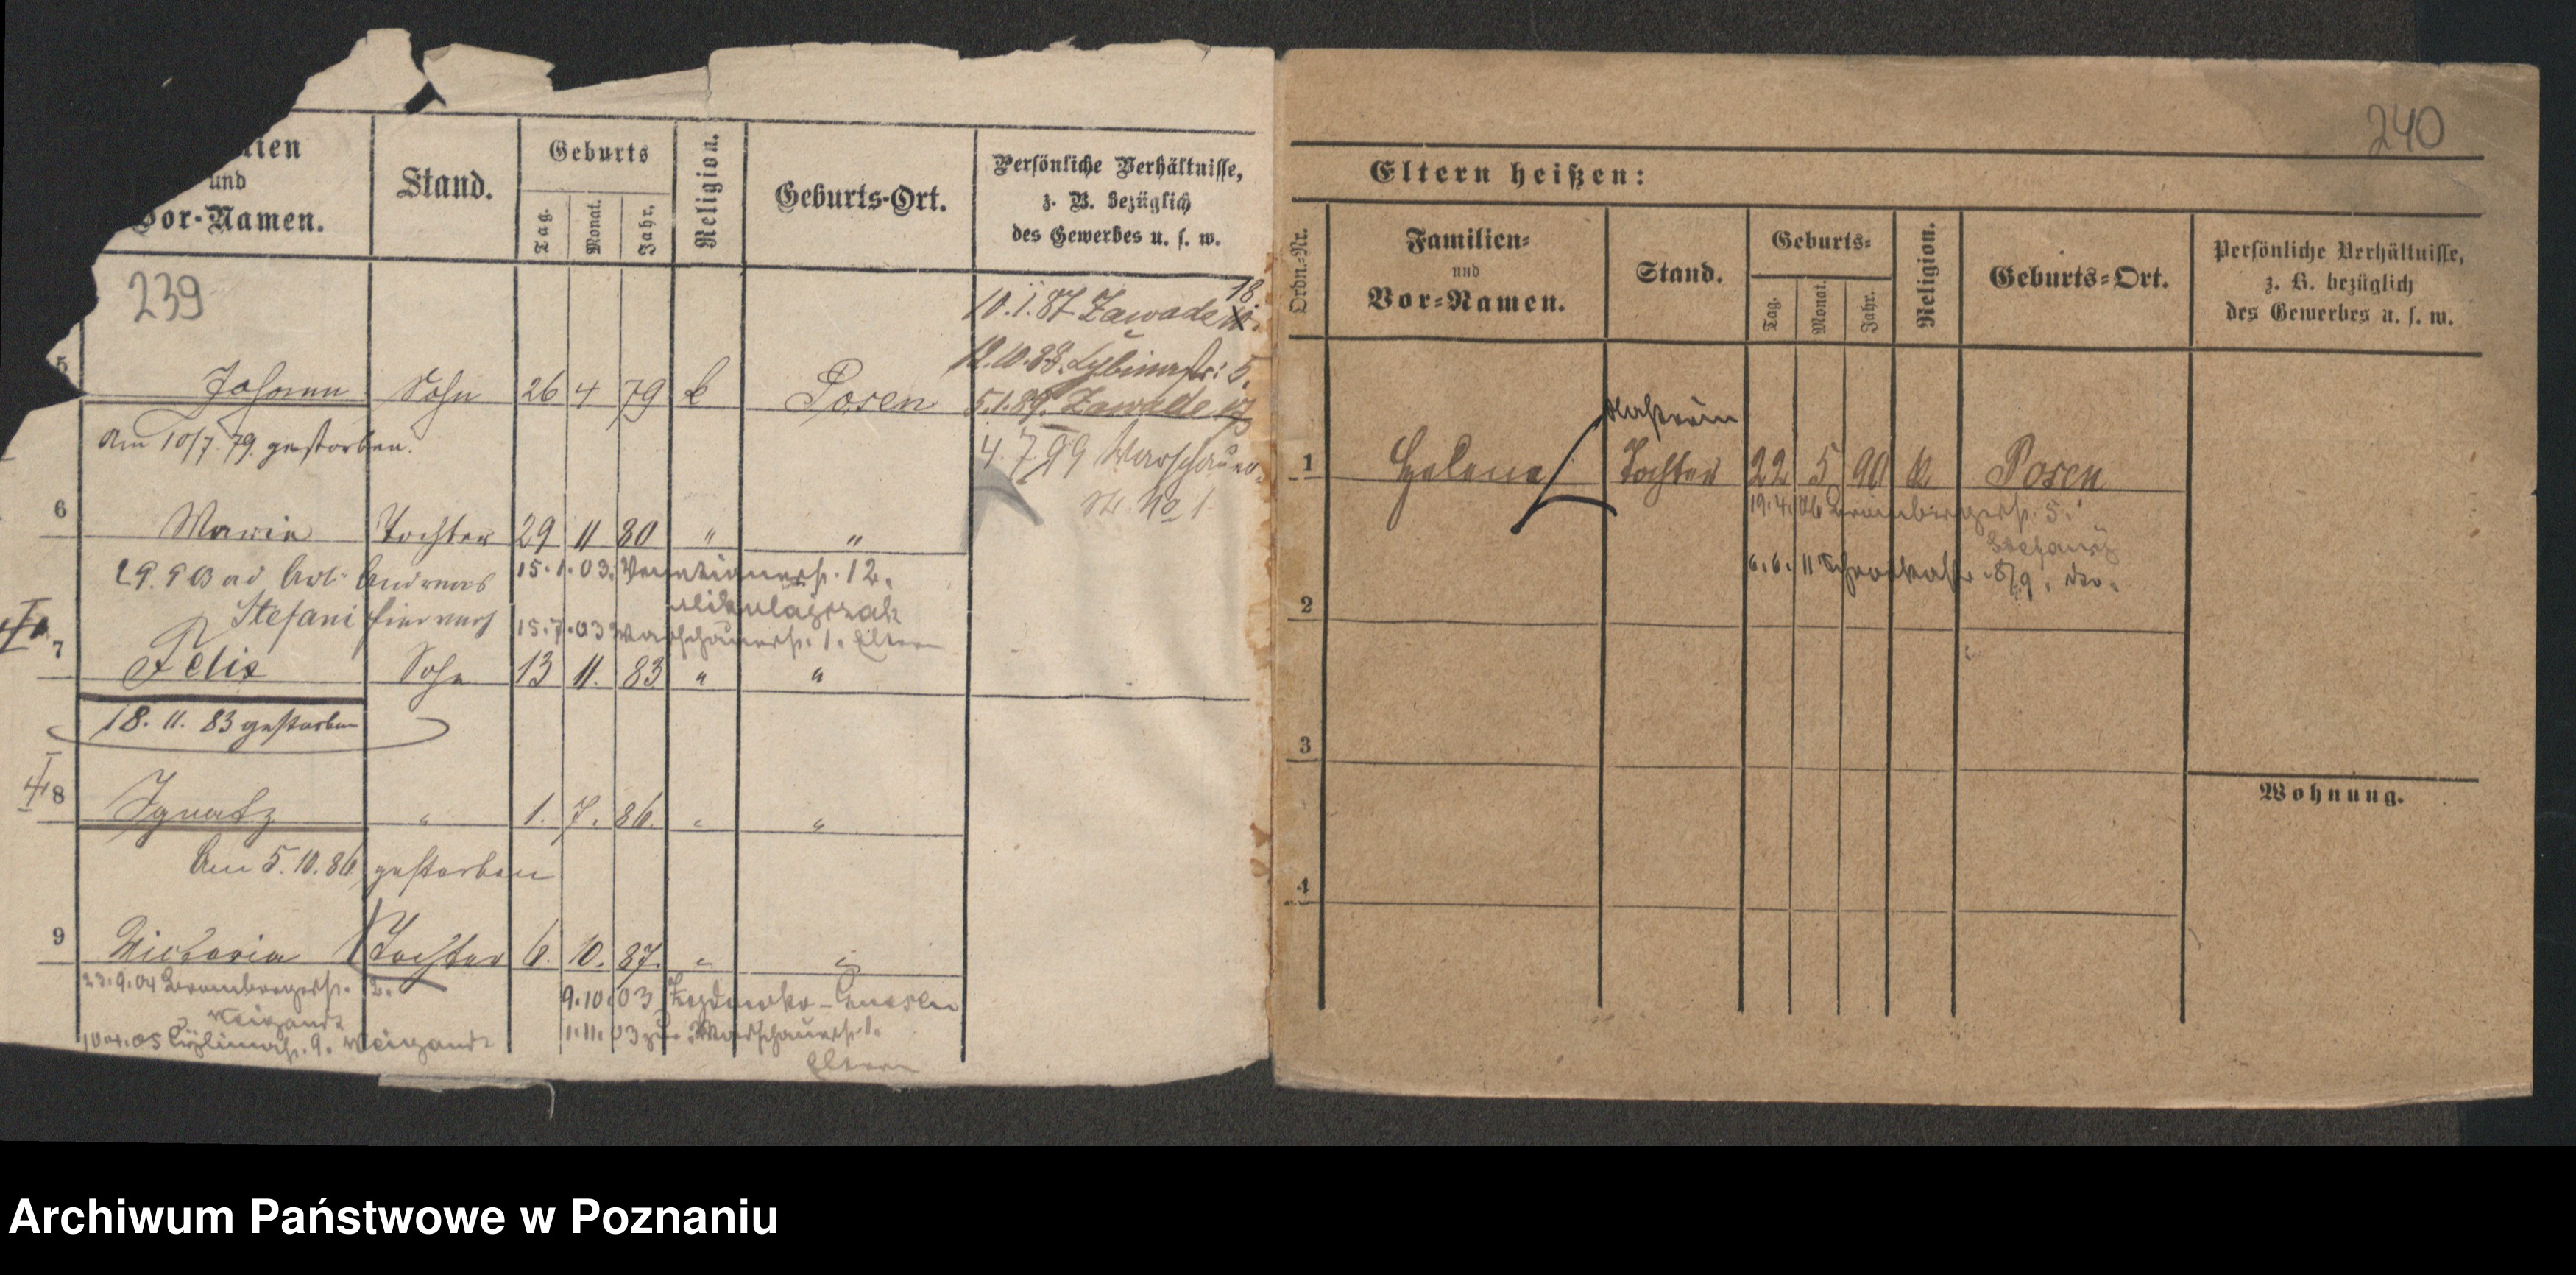 Familien
und
Vor-Namen.
Stand.
Geburts
Tag.
Monat.
Jahr.
Religion.
Geburts-Ort.
Persönliche Verhältnisse,
z. B. bezüglich
des Gewerbes u. s. w.
239
10.1.87 Zawade 18.
12.10.88. Cybinastr: 5.
5 Johann Sohn 26 4 79 k Posen
5.1.89. Zawade
Am 10/7.79. gestorben.
4.7.99 Warschauer
Str. No 1.
6 Maria Tochter 29 11 80 " "
29.9.03 Andreas
15.1.03. 12.
Mikulajczak
Stefani
15.7.03 Warschauerstr. 1. Eltern
7 Felix Sohn 13 11. 83 " "
18. 11. 83 gestorben
8 Ignatz " 1. 7. 86. " "
Am 5.10.86 gestorben
9 Victoria Tochter 6. 10. 87. " "
23.9.04 Brombergerstr. 2.
Weigandt
10.4.05 Cybinastr. 9. Weigandt
9.10.03 Gnesen
1.11.03 zu. Warschauerstr. 1.
Eltern
240
Eltern heißen:
Ordn.-Nr.
Familien-
und
Vor-Namen.
Stand.
Geburts-
Tag.
Monat.
Jahr.
Religion.
Geburts-Ort.
Persönliche Verhältnisse,
z. B. bezüglich
des Gewerbes u. s. w.
1 Helene Tochter 22 5 90 k Posen
19.4.06 Brombergerstr. 5.
6.6.11 8/9.
2
3
4
Wohnung.
Archiwum Państwowe w Poznaniu